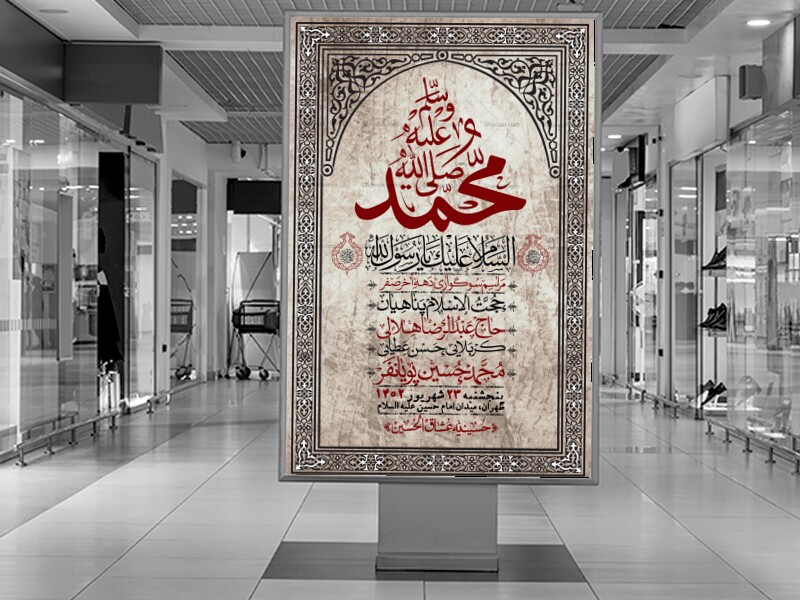 محمد
صلی الله
علیه و
وسلم
السلام علیک یا رسول الله
مراسم سوگواری دهه آخر صفر
حجت الاسلام پناهیان
حاج عبدالرضا هلالی
کربلایی حسن عطایی
محمد حسین پویانفر
پنجشنبه ۲۳ شهریور ۱۴۰۲
تهران، میدان امام حسین علیه السلام
حسینیه عشاق الحسین